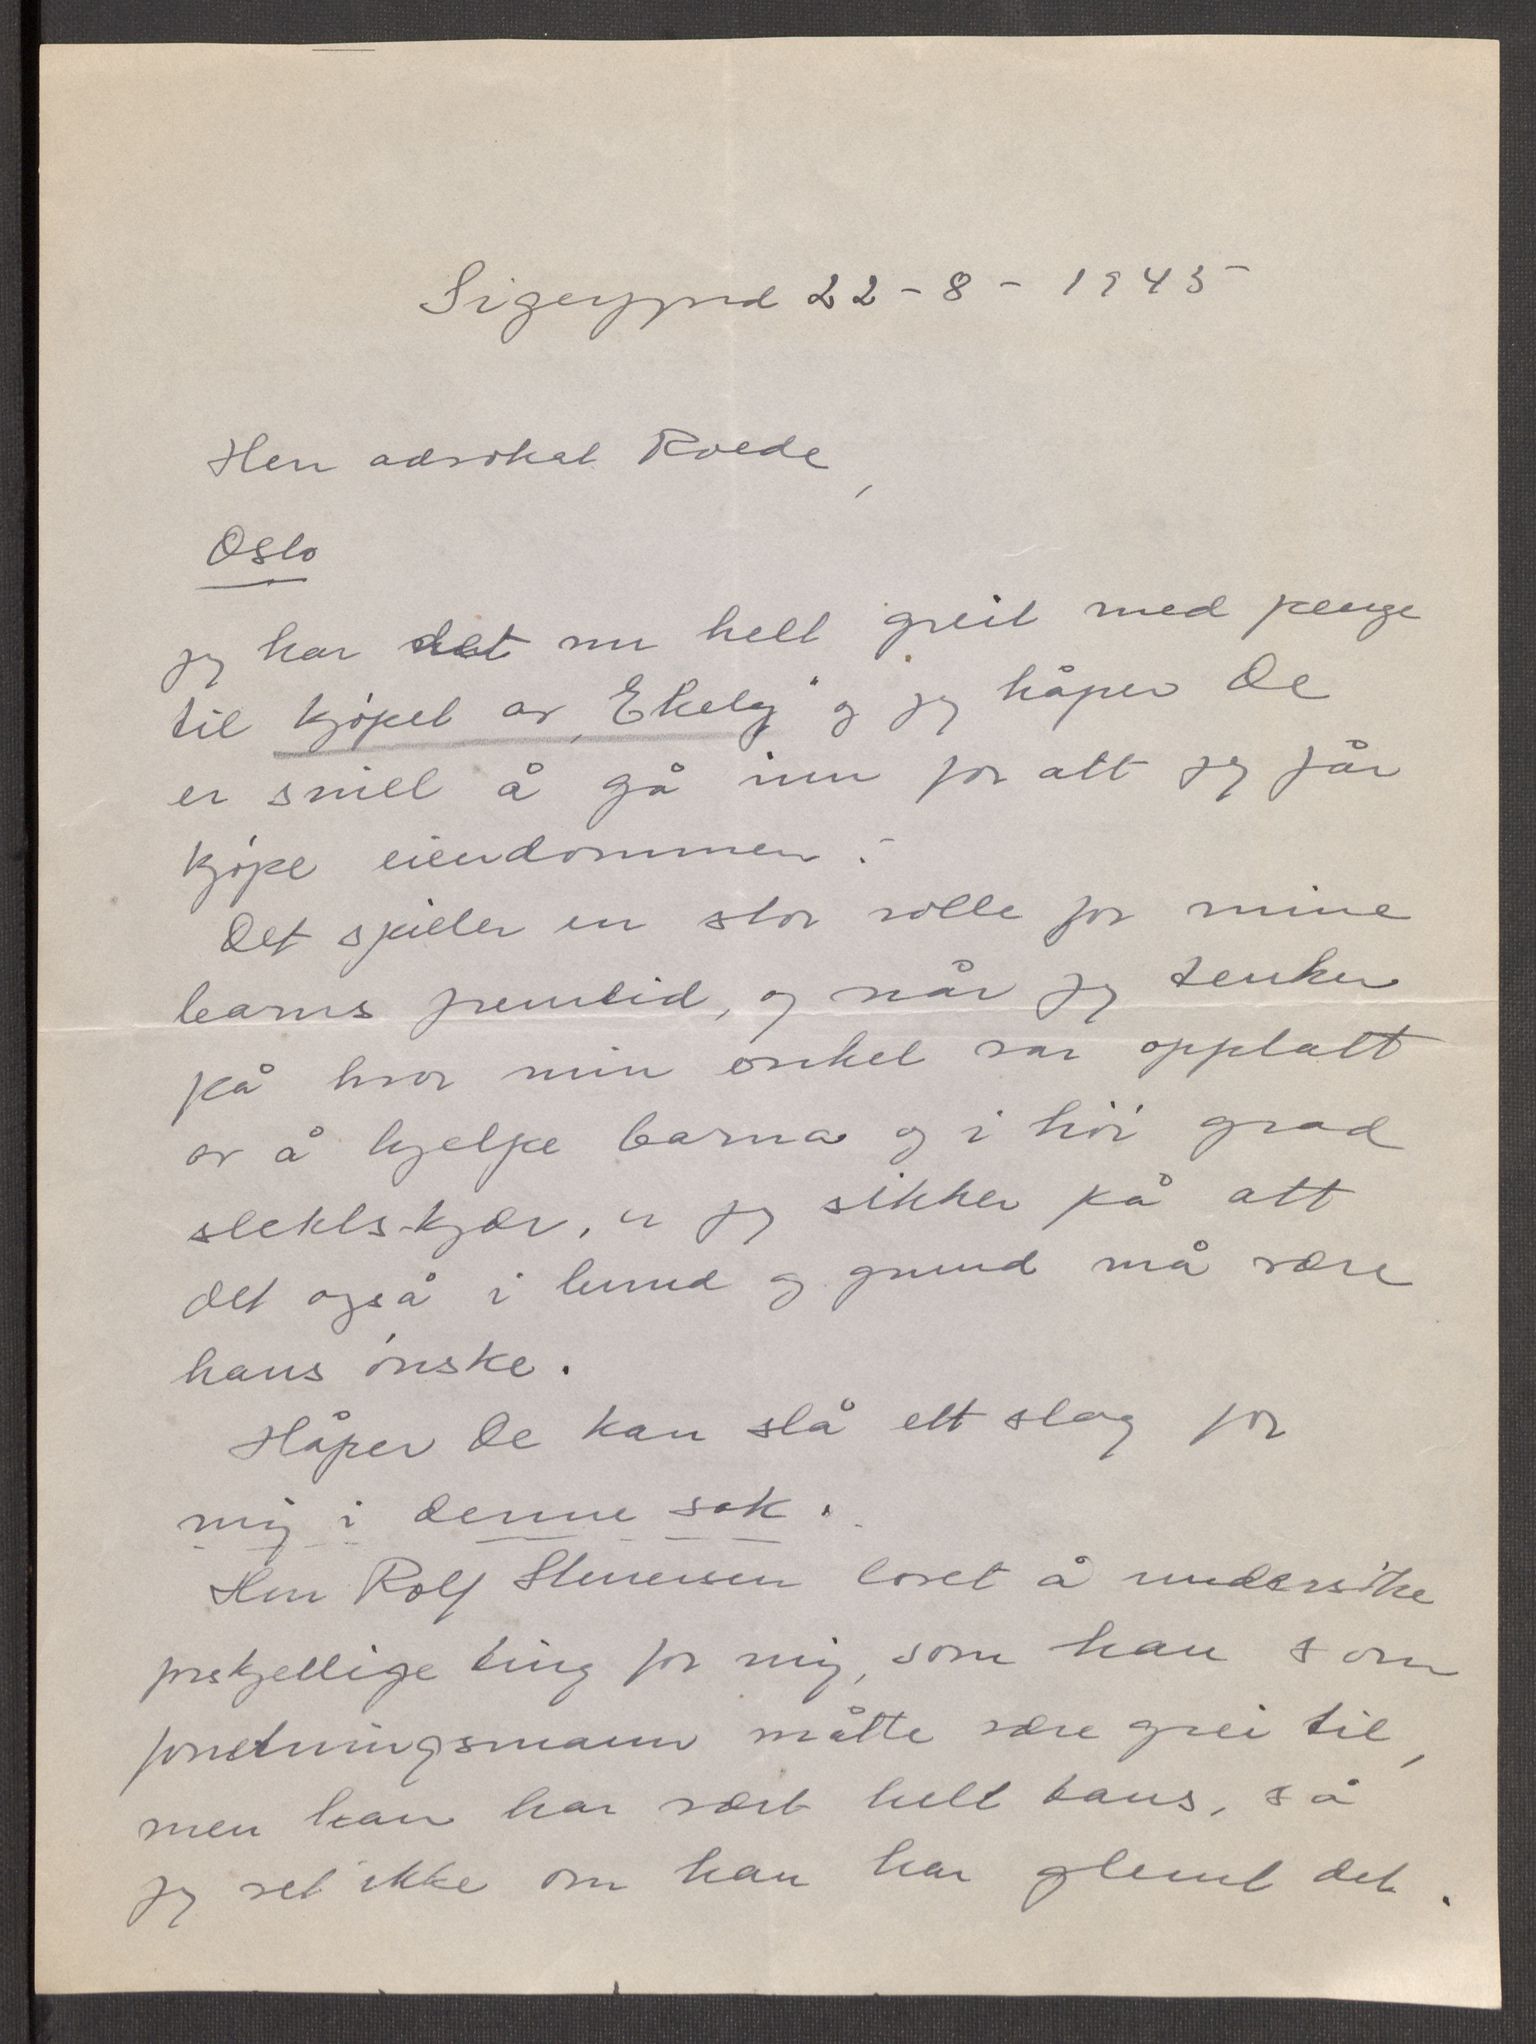 Sigerfjord 22-8-1945
Herr advokat Roede,
Oslo
jeg har det nu helt greit med penge
til kjøpet av „Ekely" og jeg håper De
er snill å gå inn for att jeg får
kjøpe eiendommen.-
Det spiller en stor rolle for mine
barns fremtid, og når jeg tenker
på hvor min onkel var opptatt
av å hjelpe barna og i høi grad
slektskjær, er jeg sikker på att
det også i bund og grund må være
hans ønske.
Håper De kan slå ett slag for
mig i denne sak.
Herr Rolf Stenersen lovet å undersøke
forskjellige ting for mig, som han som
forretningsmann måtte være grei til,
men han har vært helt taus, så
jeg vet ikke om han har glemt det.